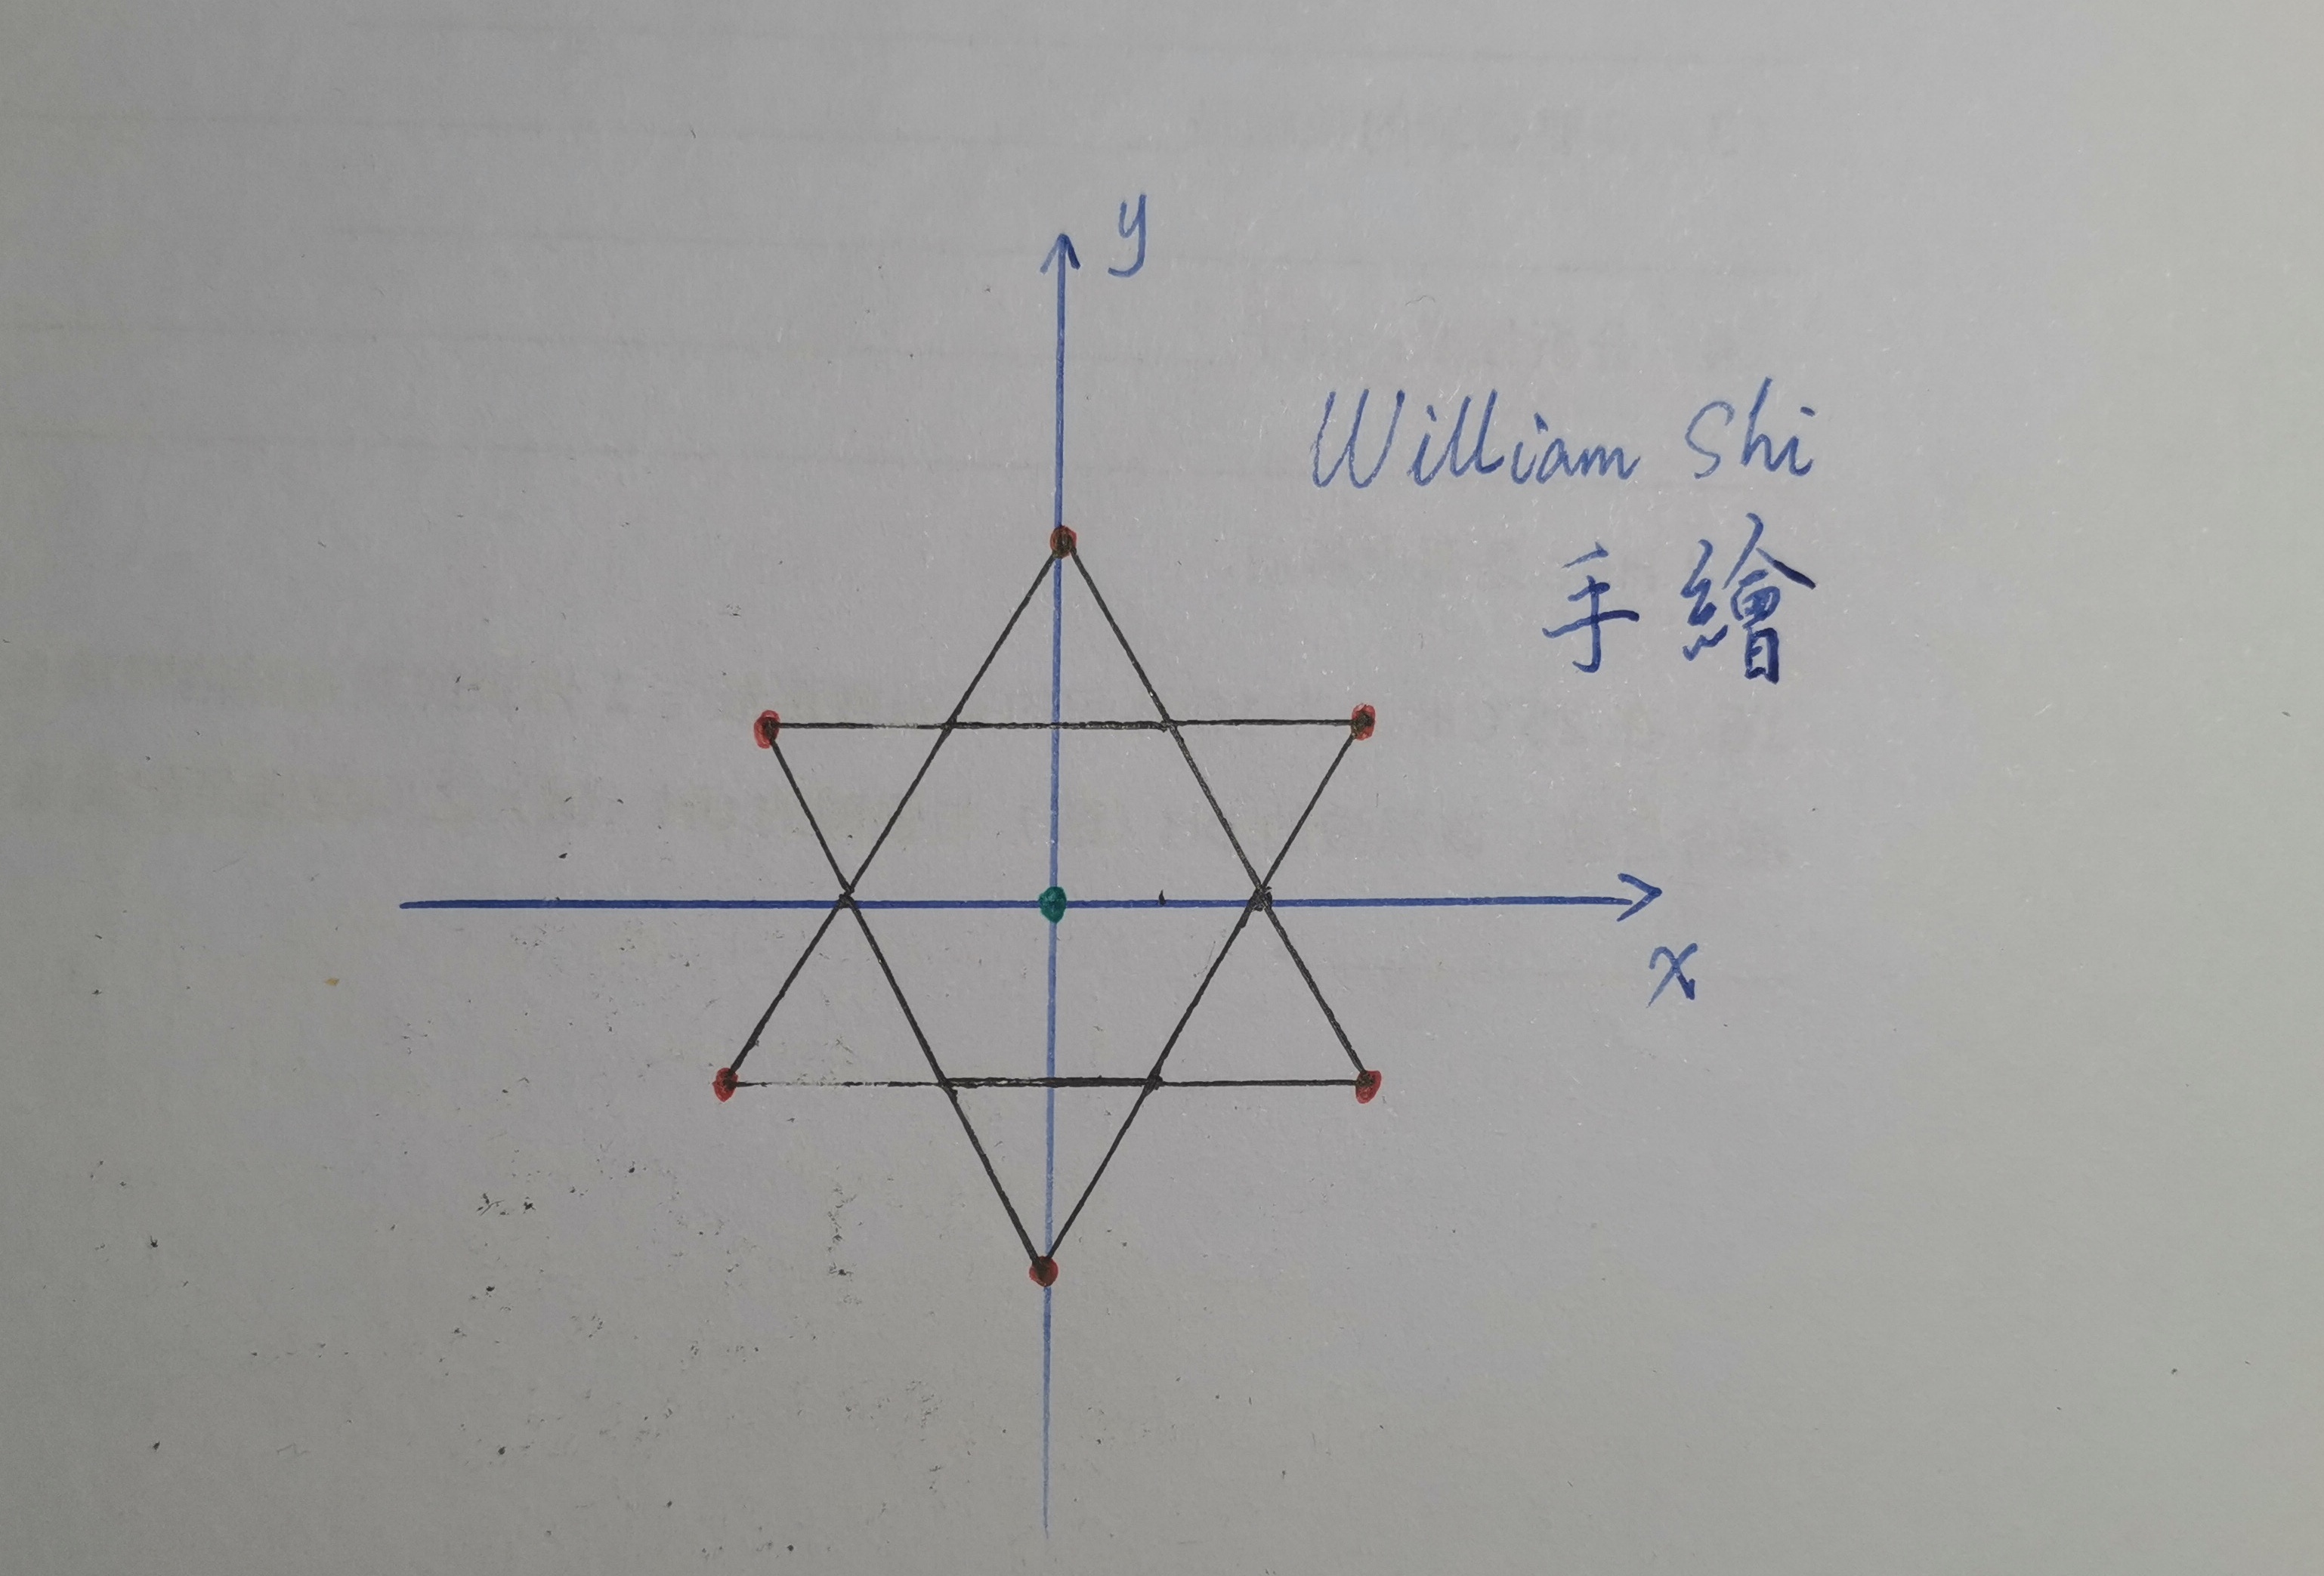 y
William Shi
手繪
x